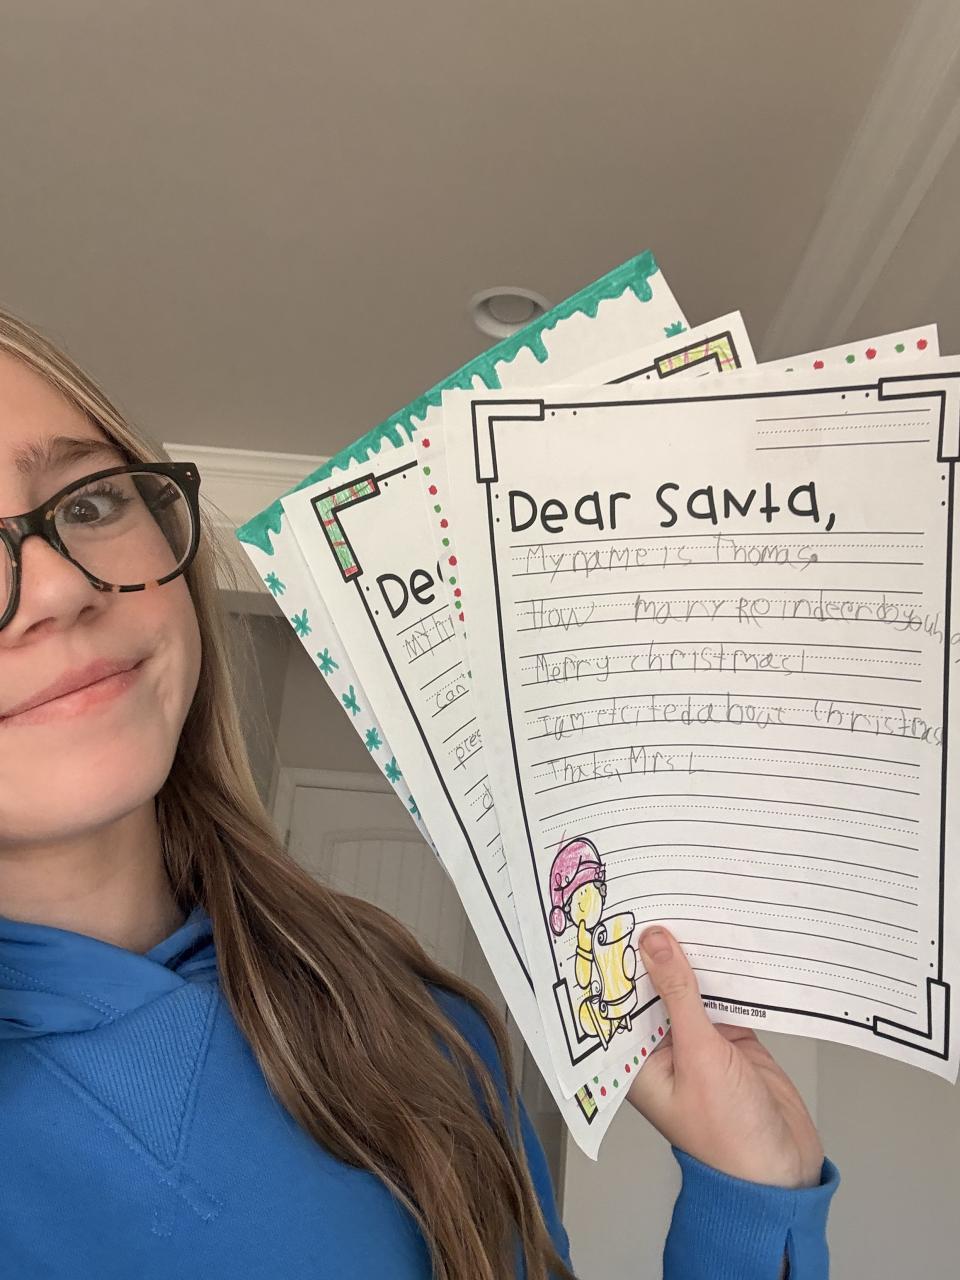 Dear Santa,
My name is Thomas.
How many Reindeer do you h
Merry christmas!
I am etcited about Christmas
Thaks, Mrs L
with the Littles 2018
De
My
can
pres